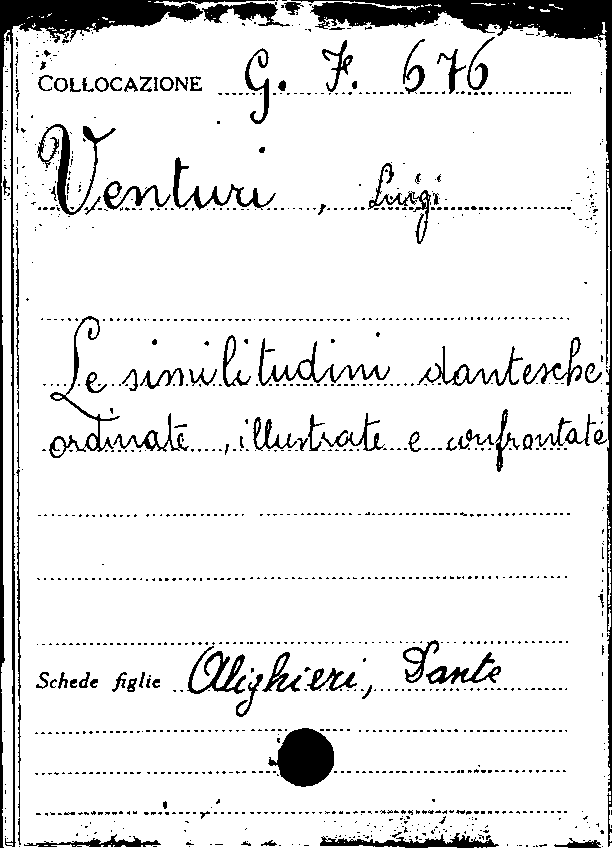 COLLOCAZIONE G. F. 676
Venturi, Luigi
Le similitudini dantesche
ordinate, illustrate e confrontate
Schede figlie Alighieri, Dante